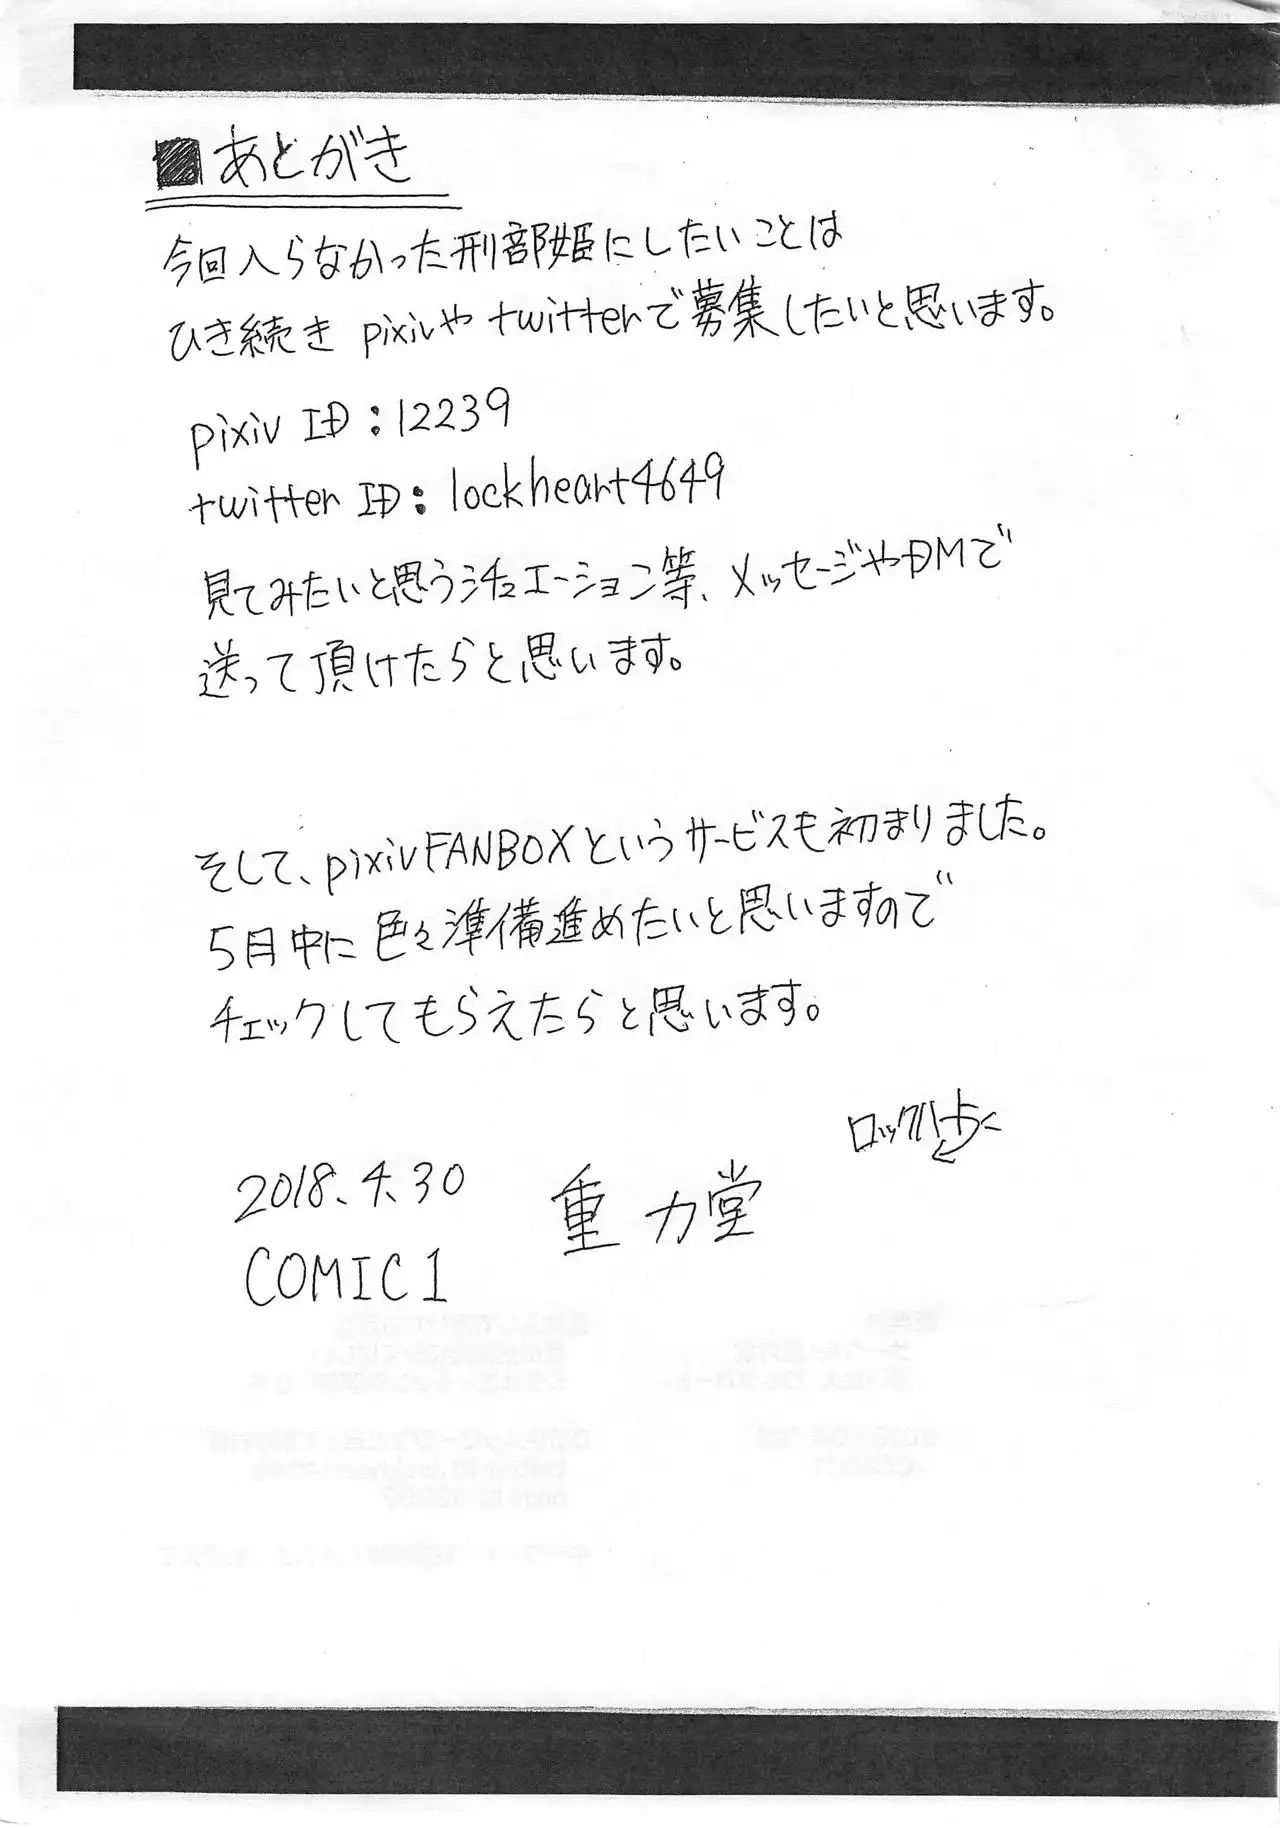 ■あとがき
今回入らなかった刑部姫にしたいことは
ひき続き pixivや twitterで募集したいと思います。
pixiv ID:12239
twitter ID:lockheart4649
見てみたいと思うシチュエーション等、メッセージやDMで
送って頂けたらと思います。
そして、pixivFANBOXというサービスも初まりました。
5月中に色々準備進めたいと思いますので
チェックしてもらえたらと思います。
ロックハート
2018.4.30 重力堂
COMIC1